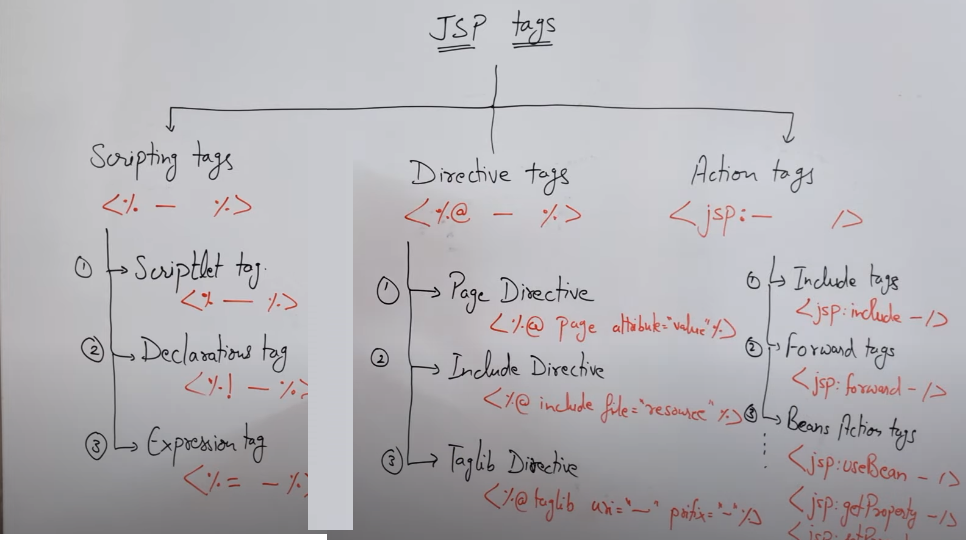 JSP tags
Scripting tags
<% — %>
① Scriptlet tag.
<% — %>
② Declarations tag
<%! — %>
③ Expression tag
<%= — %
Directive tags
<%@ — %>
① Page Directive
<%@ page attribute="value" %>
② Include Directive
<%@ include file="resource" %>
③ Taglib Directive
<%@ taglib uri="—" prefix="—" %>
Action tags
<jsp:— />
① Include tags
<jsp:include — />
② Forward tags
<jsp:forward — />
③ Beans Action tags
<jsp:useBean — />
<jsp:getProperty — />